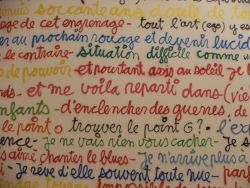 depuis soixante ans droits de
de cet engrenage - tout l'art (ego) y es
au prochain rouage et devenir lucid
le contraire - situation difficile comme u
de pouvoir - et pourtant assis au soleil je
et me voila reparti dans (vie
enfants - d'enclencher des guerres, de
le point 0 trouver le point G? - l'ex
- je ne vais rien vous cacher - Je s
aimé chanter le blues - Je n'arrive plus a
- Je rêve d'elle souvent toute nue -